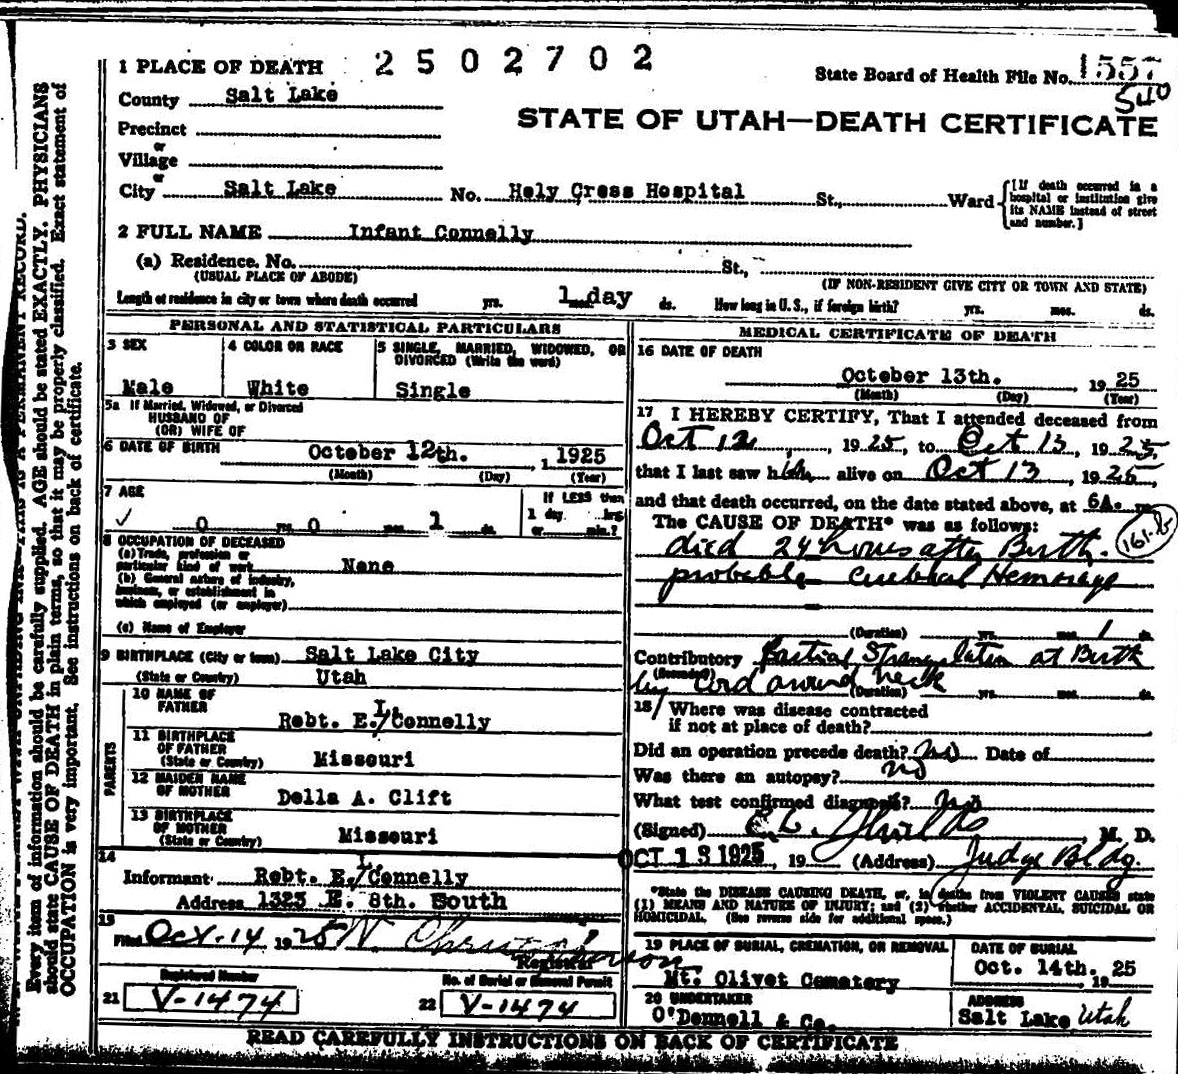 1 PLACE OF DEATH 2502702 State Board of Health File No. 1557
540
County Salt Lake
STATE OF UTAH—DEATH CERTIFICATE
Precinct
or
Village
or
City Salt Lake No. Holy Cross Hospital St., Ward [If death occurred in a hospital or institution give its NAME instead of street and number.]
2 FULL NAME Infant Connelly
(a) Residence. No. St.,
(USUAL PLACE OF ABODE) (IF NON-RESIDENT GIVE CITY OR TOWN AND STATE)
Length of residence in city or town where death occurred yrs. 1 mos. day ds. How long in U. S., if foreign birth? yrs. mos. ds.
PERSONAL AND STATISTICAL PARTICULARS
3 SEX
Male
4 COLOR OR RACE
White
5 SINGLE, MARRIED, WIDOWED, OR
DIVORCED (Write the word)
Single
5a If Married, Widowed, or Divorced
HUSBAND OF
(OR) WIFE OF
6 DATE OF BIRTH October 12th. 1 1925
(Month) (Day) (Year)
7 AGE
0 yrs. 0 mos. 1 ds.
If LESS than
1 day hrs.
or min.?
8 OCCUPATION OF DECEASED
(a) Trade, profession or
particular kind of work None
(b) General nature of industry,
business, or establishment in
which employed (or employer)
(c) Name of Employer
9 BIRTHPLACE (City or town) Salt Lake City
(State or Country) Utah
PARENTS
10 NAME OF
FATHER Robt. E. L. Connelly
11 BIRTHPLACE
OF FATHER
(State or Country) Missouri
12 MAIDEN NAME
OF MOTHER Della A. Clift
13 BIRTHPLACE
OF MOTHER
(State or Country) Missouri
14
Informant Robt. E. L. Connelly
Address 1323 E. 8th. South
15
Filed Oct-14 1925 N. Christopherson
Registrar
Registered Number
21 V-1474
No. of Burial or Removal Permit
22 V-1474
MEDICAL CERTIFICATE OF DEATH
16 DATE OF DEATH
October 13th. 19 25
(Month) (Day) (Year)
17 I HEREBY CERTIFY, That I attended deceased from
Oct 12, 1925, to Oct 13, 1925,
that I last saw him alive on Oct 13, 1925,
and that death occurred, on the date stated above, at 6A. m.
The CAUSE OF DEATH* was as follows:
161-b
died 24 hours after Birth.
probable Cerebral Hemorage
(Duration) yrs. mos. 1 ds.
Contributory Partial Strangulation at Birth
(Secondary)
by Cord around neck
(Duration) yrs. mos. ds.
18 Where was disease contracted
if not at place of death?
Did an operation precede death? no Date of
Was there an autopsy? no
What test confirmed diagnosis? no
(Signed) Shields, M. D.
OCT 13 1925, 19 (Address) Judge Bldg.
*State the DISEASE CAUSING DEATH, or, in deaths from VIOLENT CAUSES state
(1) MEANS AND NATURE OF INJURY; and (2) whether ACCIDENTAL, SUICIDAL OR
HOMICIDAL. (See reverse side for additional space.)
19 PLACE OF BURIAL, CREMATION, OR REMOVAL
Mt. Olivet Cemetery
DATE OF BURIAL
Oct. 14th. 25
19
20 UNDERTAKER
O'Donnell & Co.
ADDRESS
Salt Lake Utah
READ CAREFULLY INSTRUCTIONS ON BACK OF CERTIFICATE
Every item of information should be carefully supplied. AGE should be stated EXACTLY. PHYSICIANS
should state CAUSE OF DEATH in plain terms, so that it may be properly classified. Exact statement of
OCCUPATION is very important. See instructions on back of certificate.
THIS IS A PERMANENT RECORD.